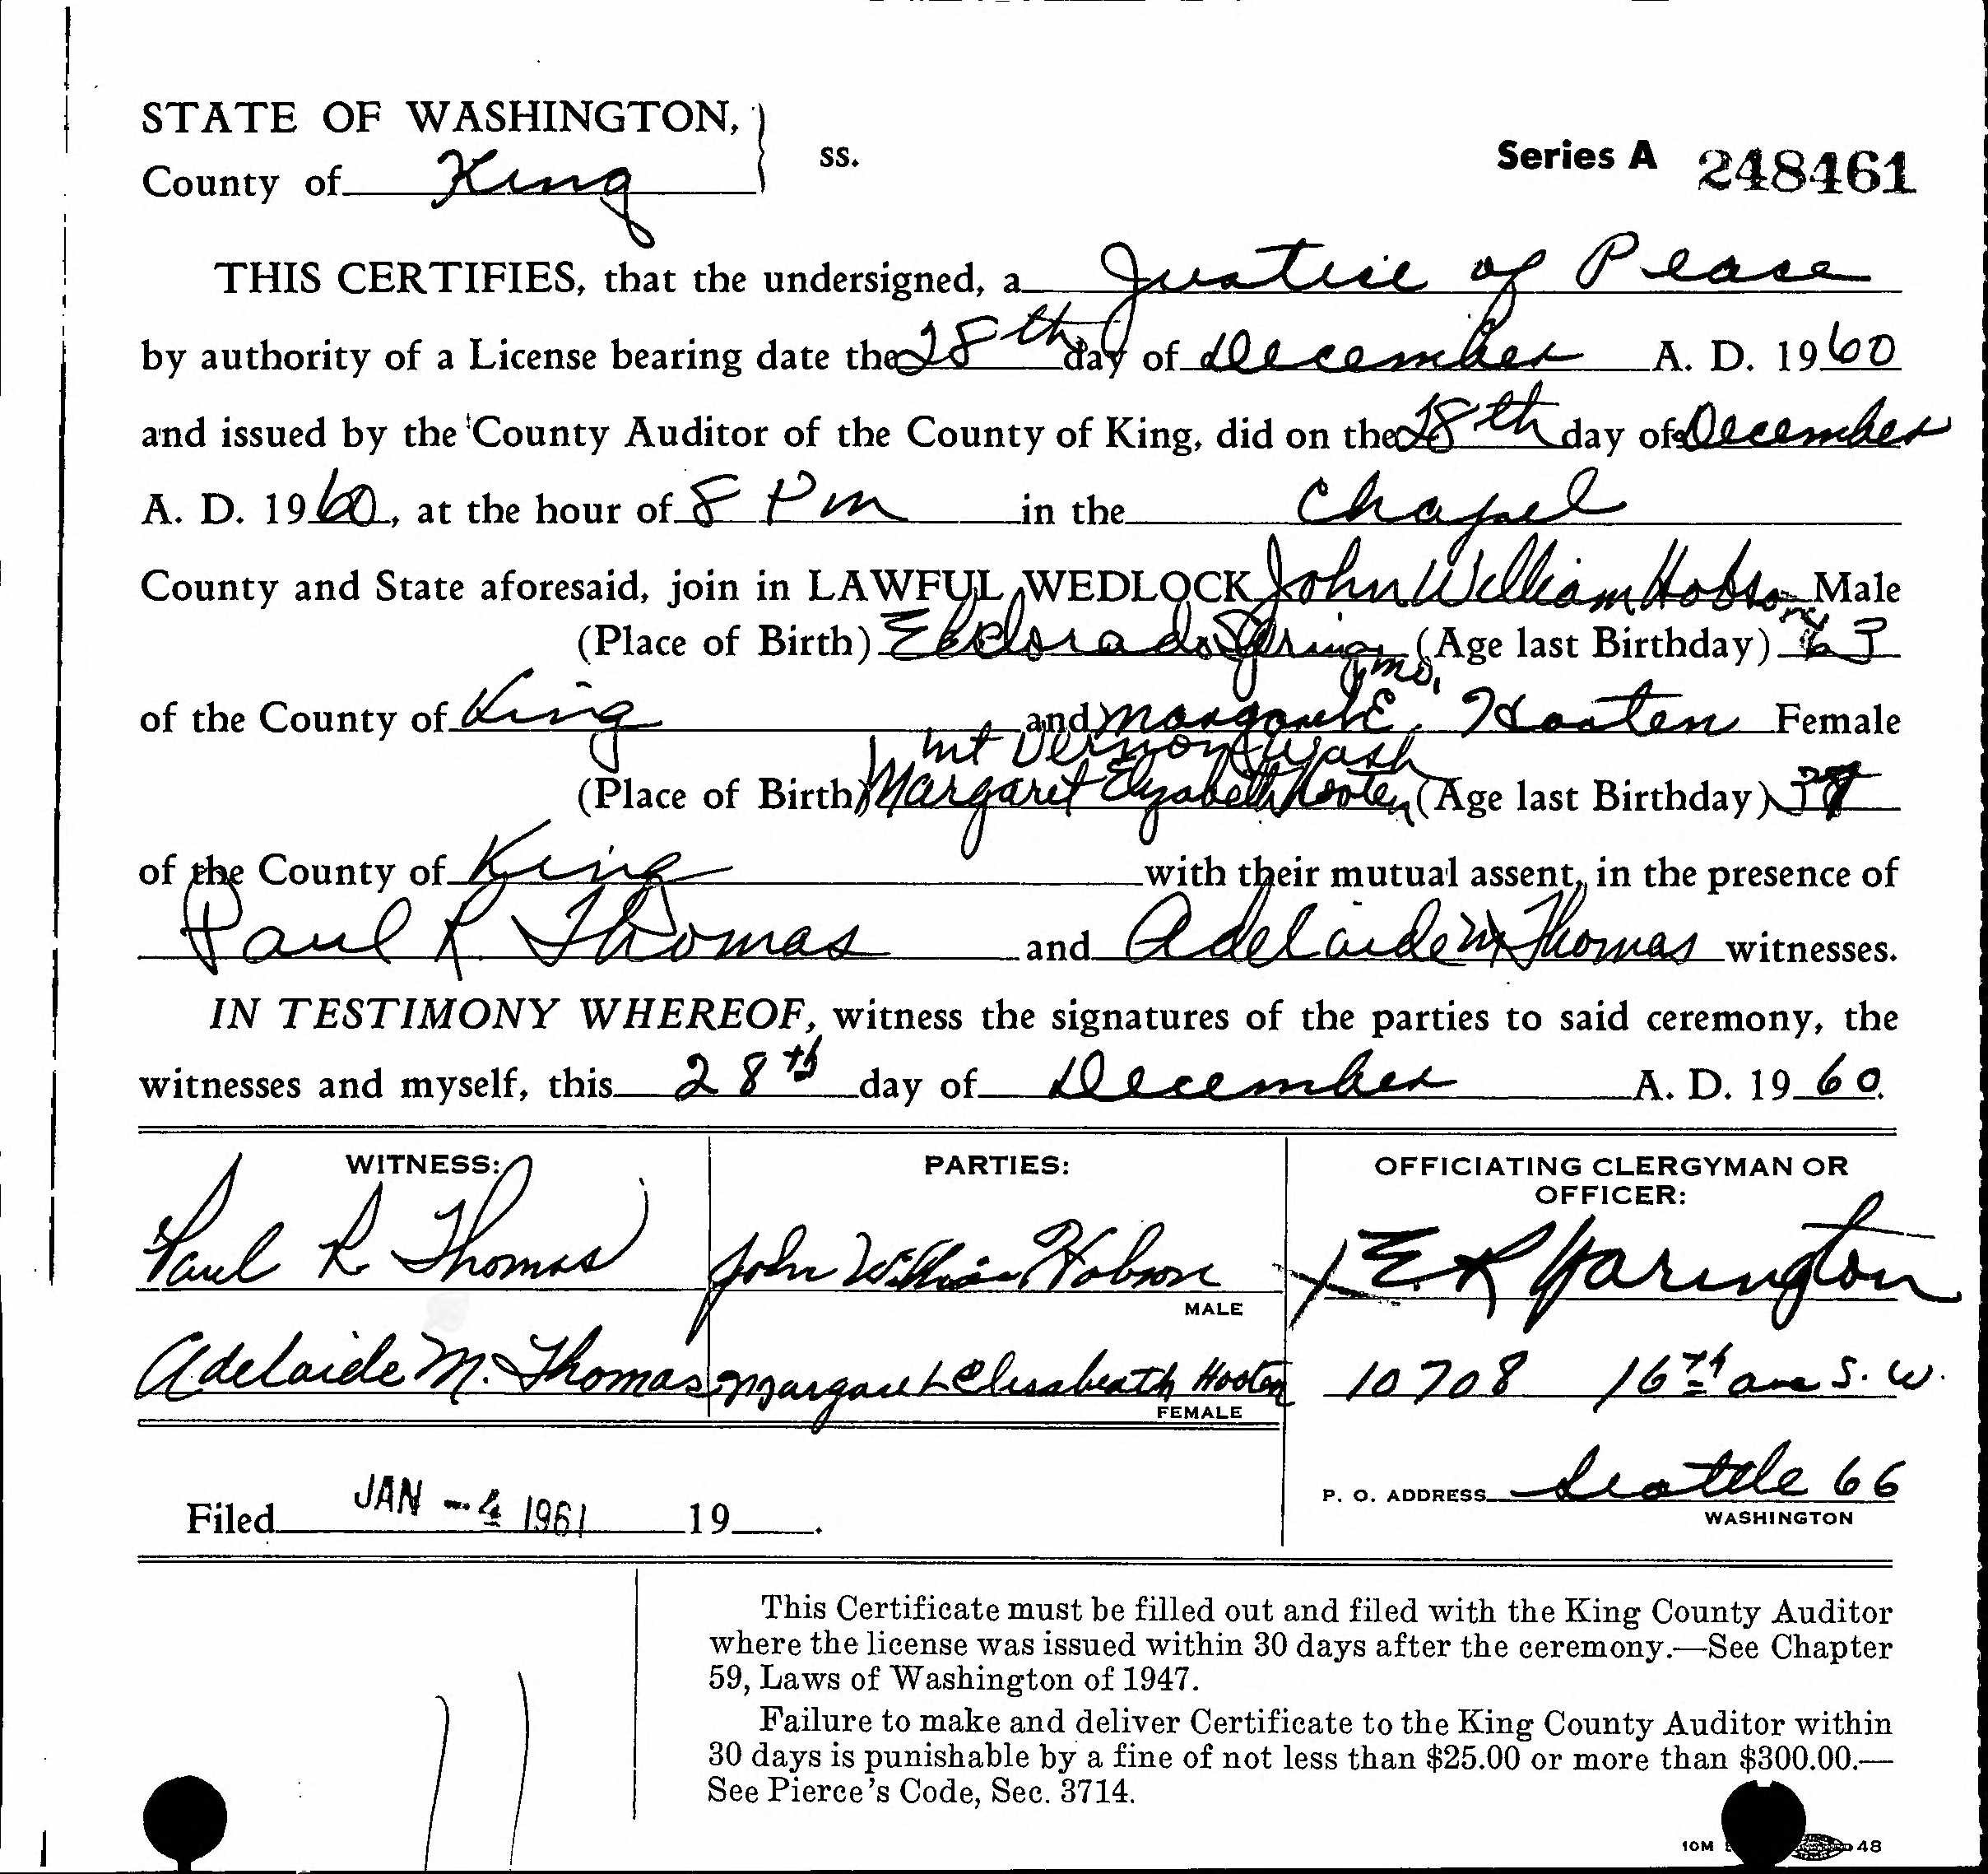 STATE OF WASHINGTON,
County of King ss.
Series A 248461
THIS CERTIFIES, that the undersigned, a Justice of Peace
by authority of a License bearing date the 28th day of December A. D. 1960
and issued by the County Auditor of the County of King, did on the 28th day of December
A. D. 1960, at the hour of 8 PM in the Chapel
County and State aforesaid, join in LAWFUL WEDLOCK John William Hobson Male
(Place of Birth) Springs Mo. (Age last Birthday) 63
of the County of King and Margaret E. Hooten Female
Mt Vernon Wash
(Place of Birth) Margaret Elyzabeth Hooten (Age last Birthday)
of the County of King with their mutual assent, in the presence of
Paul R. Thomas and Adelaide M Thomas witnesses.
IN TESTIMONY WHEREOF, witness the signatures of the parties to said ceremony, the
witnesses and myself, this 28th day of December A. D. 1960.
WITNESS: PARTIES: OFFICIATING CLERGYMAN OR
OFFICER:
Paul R Thomas John William Hobson E R Yarington
MALE
Adelaide M. Thomas Margaret Hooten 10708 16th ave S. W.
FEMALE
P. O. ADDRESS Seattle 66
WASHINGTON
Filed JAN -4 1961 19 .
This Certificate must be filled out and filed with the King County Auditor
where the license was issued within 30 days after the ceremony.—See Chapter
59, Laws of Washington of 1947.
Failure to make and deliver Certificate to the King County Auditor within
30 days is punishable by a fine of not less than $25.00 or more than $300.00.—
See Pierce's Code, Sec. 3714.
10M 48